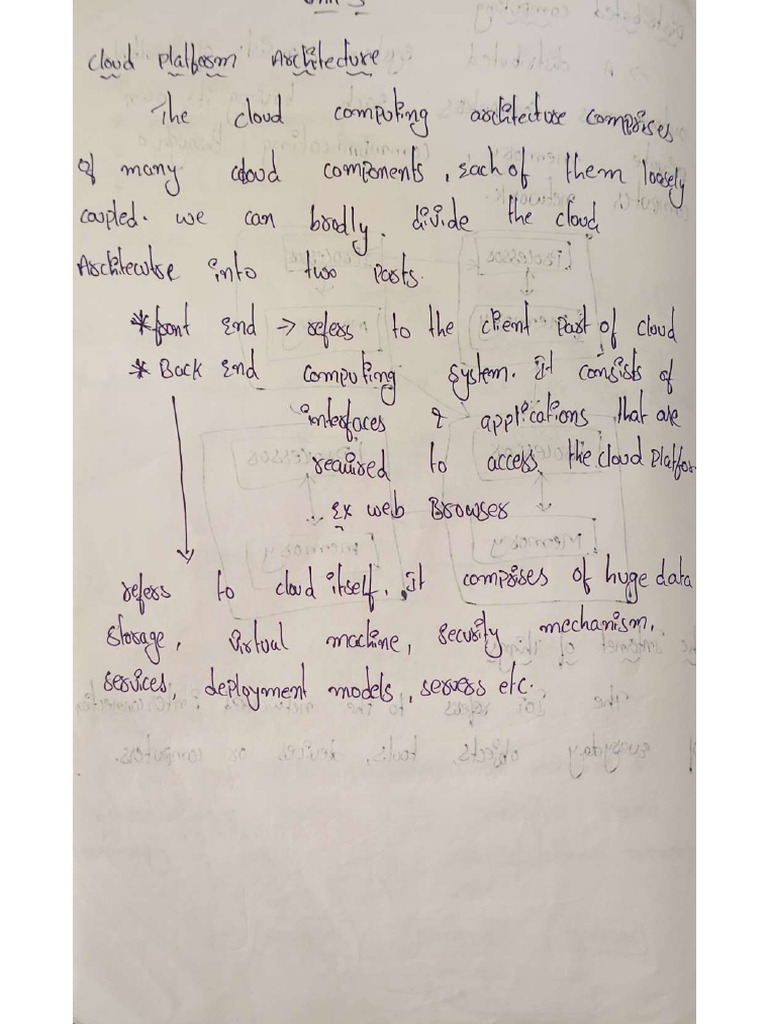 Unit 3
Cloud Platform Architecture
The cloud computing architecture comprises
of many cloud components, Each of them loosely
coupled. we can bradly. divide the cloud
Architecutse into two parts.
* front End → refers to the client part of cloud
* Back End computing system. It consists of
interfaces & applications that are
required to access the cloud Platfor
... Ex web Browser
refers to cloud itself. It comprises of huge data
storage, virtual machine, security mechanism,
services, deployment models, servers etc.